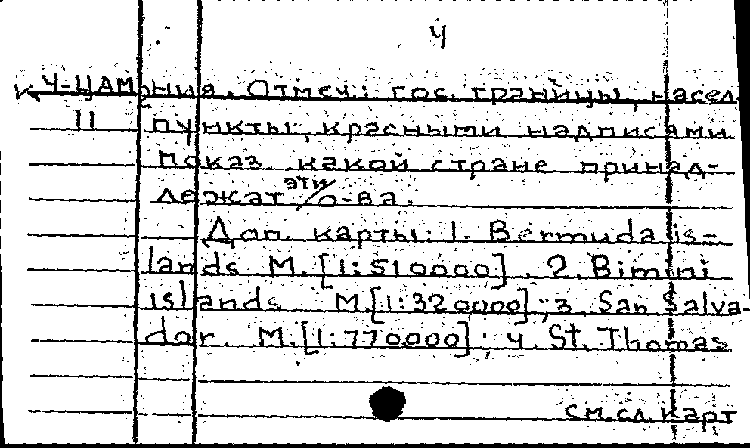 4
Ч-ЦАМ ония. Отмеч: гос. границы, насел.
11 пункты, красными надписями
показ. какой стране принад-
лежат эти о-ва.
Доп. карты: 1. Bermuda is-
lands M.[1:510000]. 2. Bimini
islands M.[1:320000]; 3. San Salva-
dor. M.[1:770000]; 4. St. Thomas
см. сл. карт